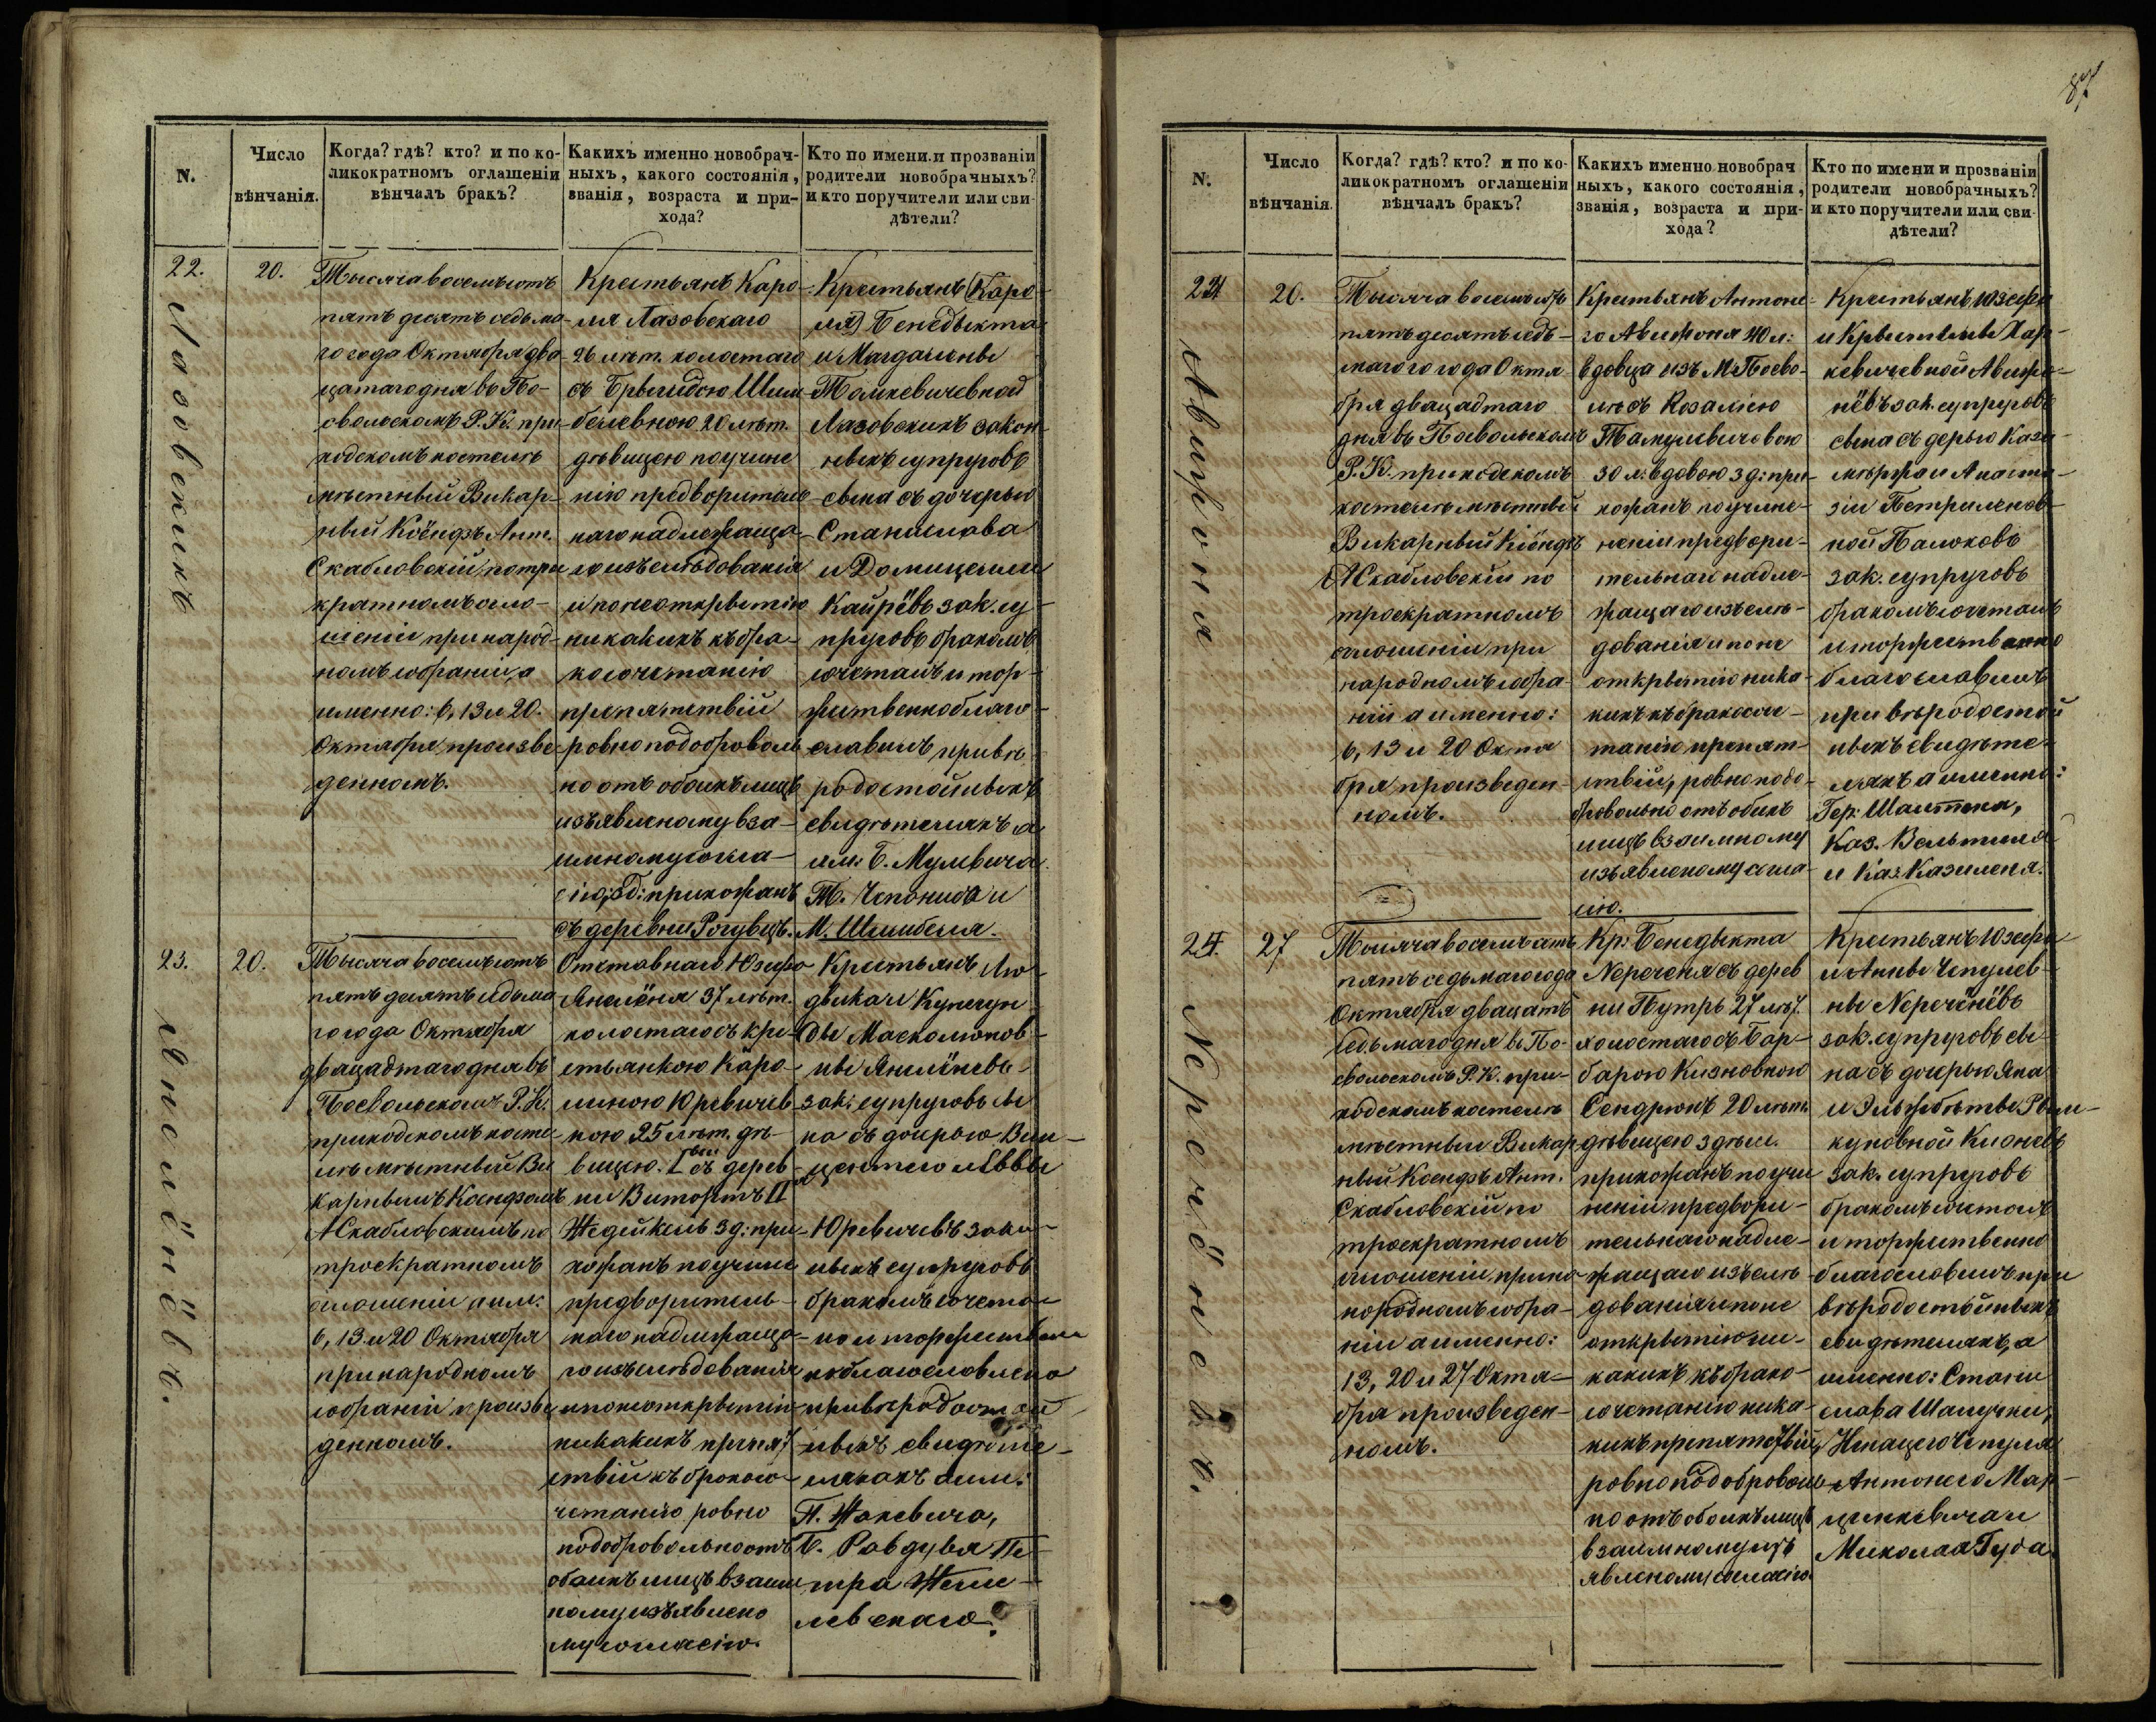 N.
Число
вѣнчанія.
Когда? гдѣ? кто? и по ко-
ликократномъ оглашеніи
вѣнчалъ бракъ?
Какихъ именно новобрач-
ныхъ, какого состоянія,
званія, возраста и при-
хода?
Кто по имени и прозваніи
родители новобрачныхъ?
и кто поручители или сви-
дѣтели?
22.
Лазовскихъ
20.
Тысяча восемьсотъ
пятъ десятъ седьма-
го года Октября два-
цатаго дня въ По-
свольскомъ Р. К. при-
ходскомъ костелѣ
мѣстный Викар-
ный Ксёндзъ Ант.
Скабловскій, по три
кратномъ огло-
шеніи при народ-
номъ собраніи, а
именно: 6, 13 и 20.
Октября, произве-
денномъ.
Крестьянъ Каро-
ля Лазовскаго
26 лѣт. холостаго
съ Брыгидою Шим-
белевною 20 лѣт.
дѣвицею по учине
нію предворитель-
наго надлежаща-
го изслѣдованія
и по неоткрытію
никакихъ къ бра-
косочетанію
препятствій
ровно по доброволь
но отъ обоихъ лицъ
изъявленому вза-
имному согла-
сію, об: прихожанъ
съ деревни Рогувцъ.
Крестьянъ (Каро-
ля) Бенедыкта
и Магдалены
Томкевичевной
Лазовскихъ закон-
ныхъ супруговъ
сына съ дочерью
Станислава
и Домицели
Кайрёвъ зак. су-
пруговъ бракомъ
сочеталъ и тор-
жественно благо-
славилъ при вѣ-
родостойныхъ
свидѣтеляхъ а
им: Б. Мулевича
М. Шимбеля.
23.
Янелёнёвъ.
20.
Тысяча восемьсотъ
пятъ десятъ седьма
го года Октября
двацадтаго дня въ
Посвольскомъ Р. К.
приходскомъ косте-
лѣ мѣстный Ви
карнымъ Ксендзомъ
А Скабловскимъ по
троекратномъ
оглошеніи а им:
6, 13 и 20 Октября
при народномъ
собраніи произве
денномъ.
Отставнаго Юзефа
37 лѣт.
холостаго съ кре-
стьянкою Каро-
линою Юревичев-
ною 25 лѣт. дѣ-
вицею. I вый съ дерев-
ни Витортъ II
Жедейкель з д: при-
хожанъ по учине
предворитель-
наго надлежаща-
го изслѣдованія
и по неоткрытію
никакихъ препят
ствій къ бракосо-
четанію ровно
по добровольно отъ
обоихъ лицъ взаим
ному изъявлено
му согласію.
Крестьянъ Лю-
двика и Кунегун
ды Масколюнов-
ны
зак: супруговъ сы
на съ дочерью Вин-
центего и Еввы
Юревичевъ закон-
ныхъ супруговъ
бракомъ сочета-
но и торжествен
но благословлено
при вѣродостой
ныхъ свидѣте-
ляхъ а им:
П. Жакевича,
Б. Равдуля Пе-
тра
левскаго.
87
N.
Число
вѣнчанія.
Когда? гдѣ? кто? и по ко-
ликократномъ оглашеніи
вѣнчалъ бракъ?
Какихъ именно новобрач
ныхъ, какого состоянія,
званія, возраста и при-
хода?
Кто по имени и прозваніи
родители новобрачныхъ?
и кто поручители или сви-
дѣтели?
20.
Тысяча восемьсотъ
пятъдесятъ седь-
маго года Октя-
бря двацадтаго
дня въ Посвольскомъ
Р. К. приходскомъ
костелѣ мѣстный
Викарный Ксёндзъ
А Скабловскій по
троекратномъ
оглошеніи при
народномъ собра-
ніи а именно:
6, 13 и 20 Октя
бря произведен-
номъ.
Крестьянъ Антоне-
го 40 л:
вдовца изъ М. Посво-
ля съ Розаліею
Тамулевичовою
30 л: вдовою з д: при-
хожанъ по учине-
ненію предвори-
тельнаго надле-
жащаго изслѣ-
дованія и по не
открытію ника-
кихъ къ бракосоче-
танію препят-
ствій, ровно по до-
бровольно отъ обоихъ
лицъ взаимному
изъявленому согла-
сію.
Крестьянъ Юзефа
и Крыстыны Хар-
кевичевной
зак. супруговъ
сына съ дочерью Кази-
мѣржа и Анаста-
зіи Петрыленов-
ной Палюковъ
зак. супруговъ
бракомъ сочеталъ
и торжественно
благославилъ
при вѣродостой
ныхъ свидѣте-
ляхъ а именно:
и Каз. Казиленя.
24.
Неречёнёвъ.
27
Тысяча восемьсотъ
пятъ седьмаго года
Октября двацатъ
седьмаго дня въ По-
свольскомъ Р. К. при-
ходскомъ костелѣ
мѣстный Викар
ный Ксендзъ Ант.
Скабловскій по
троекратномъ
оглошеніи при на-
породномъ собра-
ніи а именно:
13, 20 и 27 Октя-
бря произведен-
номъ.
Кр: Бенедыкта
Нереченя съ дерев
ни Путръ 27 лѣт.
холостаго съ Бар-
барою Кизновною
20 лѣтъ
дѣвицею з дѣм.
прихожанъ по учи
неніи предвори-
тельнаго надле-
жащаго изслѣ-
дованія и по не
открытію ни-
какихъ къ брако-
сочетанію ника-
кихъ препятствій,
ровно по доброволь
но отъ обоихъ лицъ
взаимному изъ
явленому согласію.
Крестьянъ Юзефа
и Анны Чепулев-
ны Неречёнёвъ
зак. супруговъ сы-
на съ дочерью Яна
и Эльжбѣты Рым-
куновной
зак. супруговъ
бракомъ сочеталъ
и торжественно
благословилъ при
вѣродостойныхъ
свидѣтеляхъ, а
именно: Стани
слава
Игнацего Чепуля
Антонего Мар-
цинкевича и
Миколая Гуда.